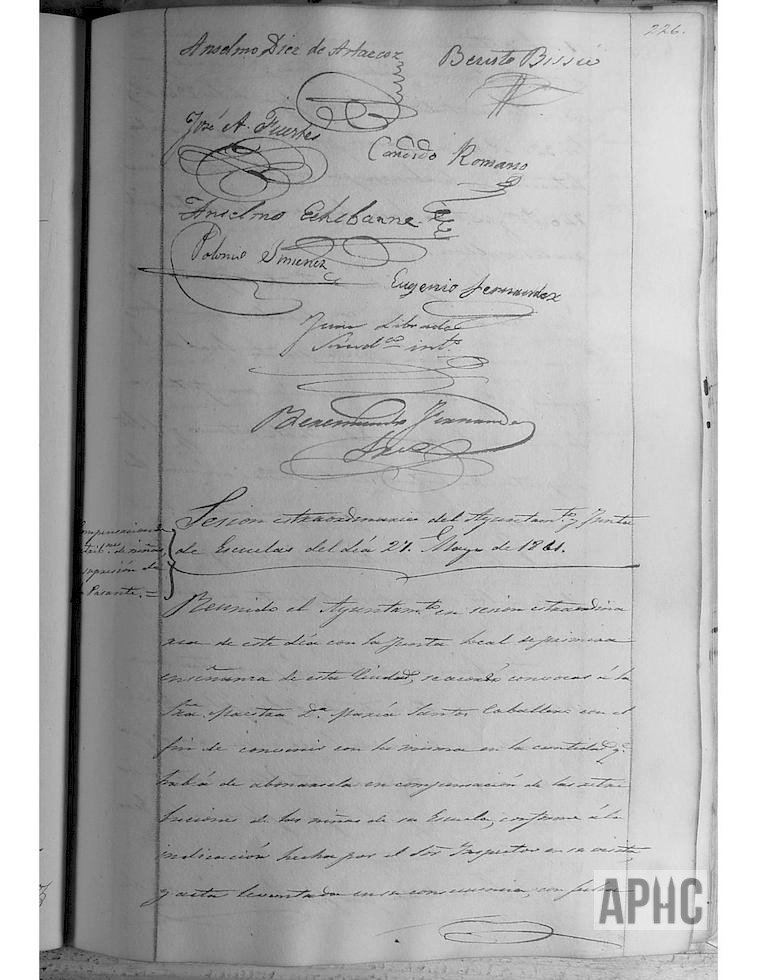 226.
Anselmo Diez de Artarcoz
Benito Bissié
José A. Fuertes
Candido Romano
Anselmo Echebarne
Polonio Simenez
Eugenio Fernandez
Juan Librado
Sindco intº
Beremundo Fernandez
Sesion estraordinaria del Ayuntamto y Junta
de Escuelas del día 27. Mayo de 1861.
de niñas,
supresión de
Pasante. =
Reunido el Ayuntamto en sesion estraordina
ria de este día con la Junta local de primera
enseñanza de esta Ciudad, se acordó convocar á la
Sra. Maestra Da. María Santos Caballero con el
fin de convenir con la misma en la cantidad q.
había de abonarsela en compensación de las retri
buciones de las niñas de su Escuela, conforme á la
indicación hecha por el Sor Inspector en su visita
y acta levantada en su consecuencia, con fecha
APHC